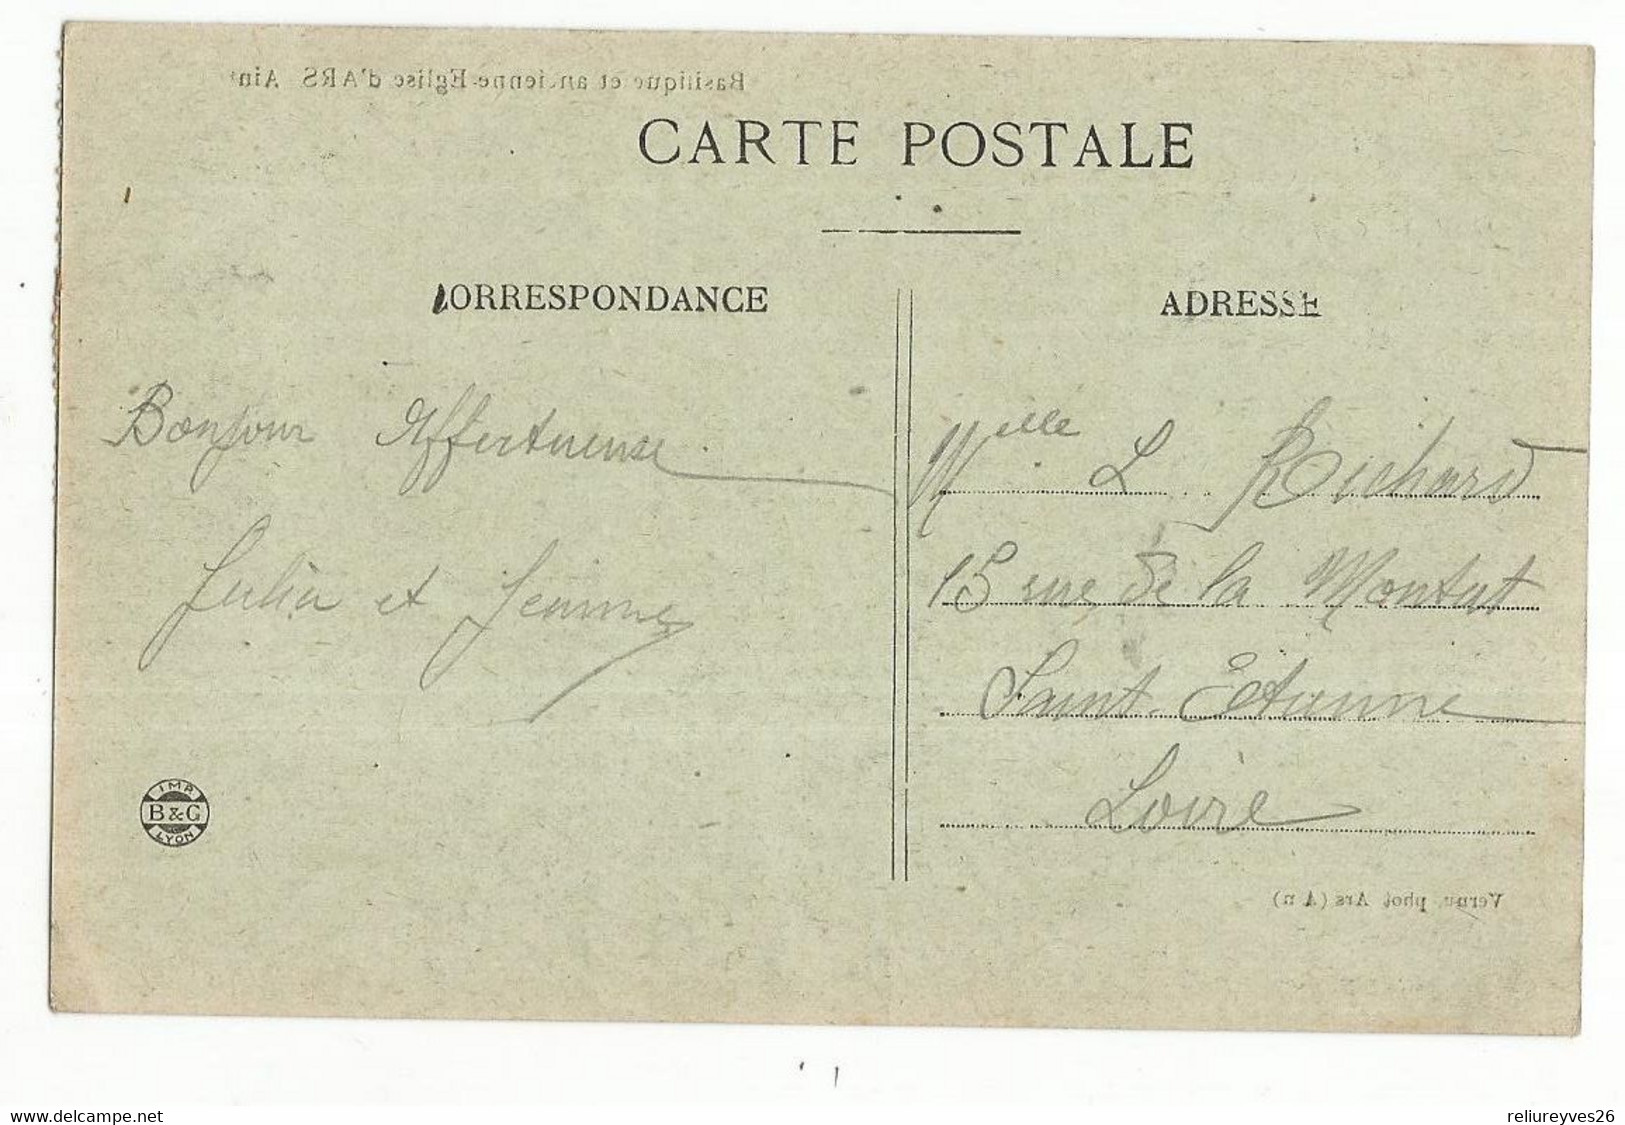 Basilique et ancienne Eglise d'ARS Ain
CARTE POSTALE
CORRESPONDANCE
ADRESSE
Bonjour Affectueuse
Julia et Jeanne
Melle L Richard
15 rue de la Montat
Saint-Etienne
Loire
IMP.
B&G
LYON
phot Ars (Ain)
www.delcampe.net
reliureyves26